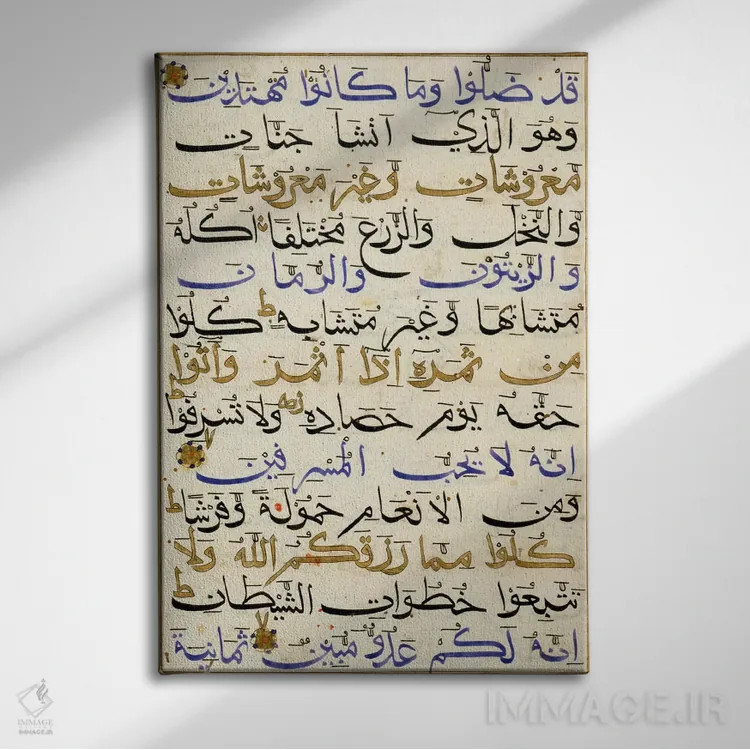 قد ضلوا وما كانوا مهتدين
وهو الذي أنشأ جنات
معروشات وغير معروشات
والنخل والزرع مختلفا أكله
والزيتون والرمان
متشابها وغير متشابه ط كلوا
من ثمره إذا أثمر وآتوا
حقه يوم حصاده ولا تسرفوا
انه لا يحب المسرفين
ومن الأنعام حمولة وفرشا ط
كلوا مما رزقكم الله ولا
تتبعوا خطوات الشيطان ط
انه لكم عدو مبين ثمانية
IMMAGE
IMMAGE.IR
IMMAGE.IR